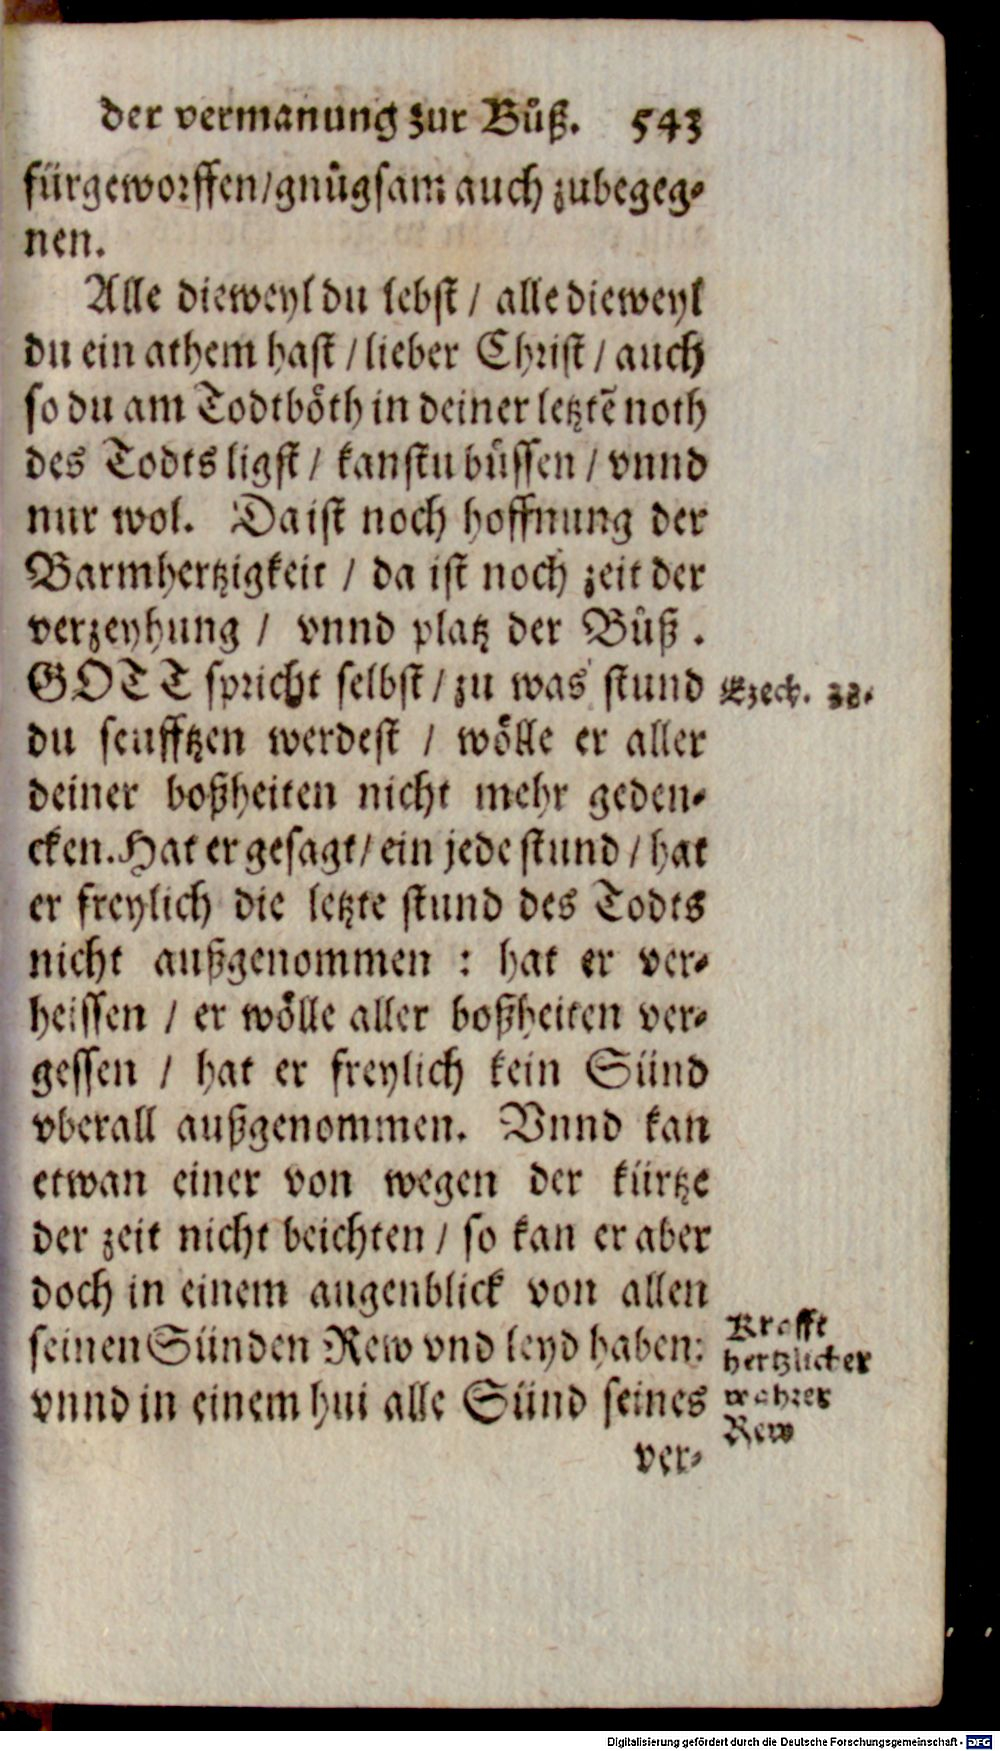 der vermanung zur Buͦß. 543
fürgeworffen/gnuͦgsam auch zubegeg-
nen.
Alle dieweyl du lebst / alle dieweyl
du ein athem hast / lieber Christ / auch
so du am Todtböth in deiner letztẽ noth
des Todts ligst / kanstu buͤssen / vnnd
nur wol. Da ist noch hoffnung der
Barmhertzigkeit / da ist noch zeit der
verzeyhung / vnnd platz der Buͦß.
GOTT spricht selbst / zu was stund
Ezech.
du seufftzen werdest / wölle er aller
deiner boßheiten nicht mehr geden-
cken. Hat er gesagt / ein jede stund / hat
er freylich die letzte stund des Todts
nicht außgenommen : hat er ver-
heissen / er wölle aller boßheiten ver-
gessen / hat er freylich kein Sünd
vberall außgenommen. Vnnd kan
etwan einer von wegen der kürtze
der zeit nicht beichten / so kan er aber
doch in einem augenblick von allen
seinen Sünden Rew vnd leyd haben:
vnnd in einem hui alle Sünd seines
Krafft
hertzlicher
wahrer
Rew
ver-
Digitalisierung gefördert durch die Deutsche Forschungsgemeinschaft - DFG